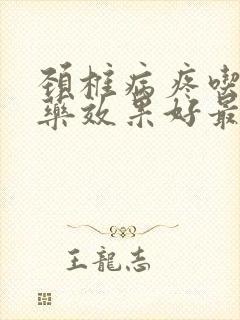 頸椎病疼喫
藥效果好最
王龍志